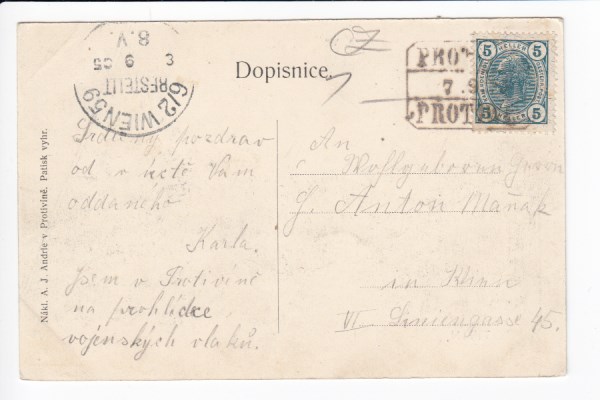 Dopisnice.
6/2 WIEN 59
BESTELLT
8. V.
3 9 05
PROT
7. 9
PROT
5 HELLER 5
5 HELLER 5
Srdečný pozdrav
od v úctě Vám
oddaného
Karla.
Jsem v Protivíně
na prohlídce
vojenských vlaků.
An
Wohlgeboren Herrn
J. Anton Maňák
in Wien
VI Liniengasse 45.
Nákl. A. J. Andrle v Protivíně. Patisk vyhr.